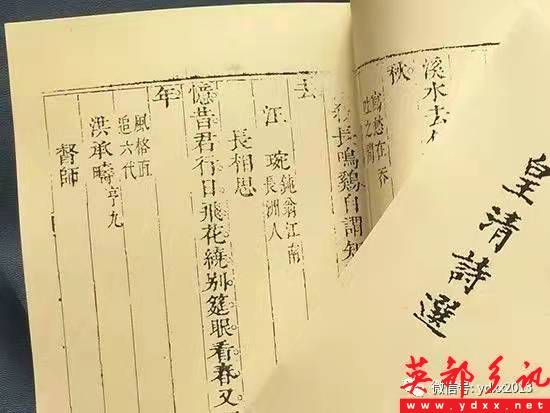 皇清詩選
溪水去
秋
長鳴鷄自謂知
去
汪琬 鈍翁江南
長洲人
長相思
憶昔君行日飛花繞別筵眼看春又
年
風格直
追六代
洪承疇 亨九
督師
微信号: ydxx2013
英都乡讯
www.ydxx.net